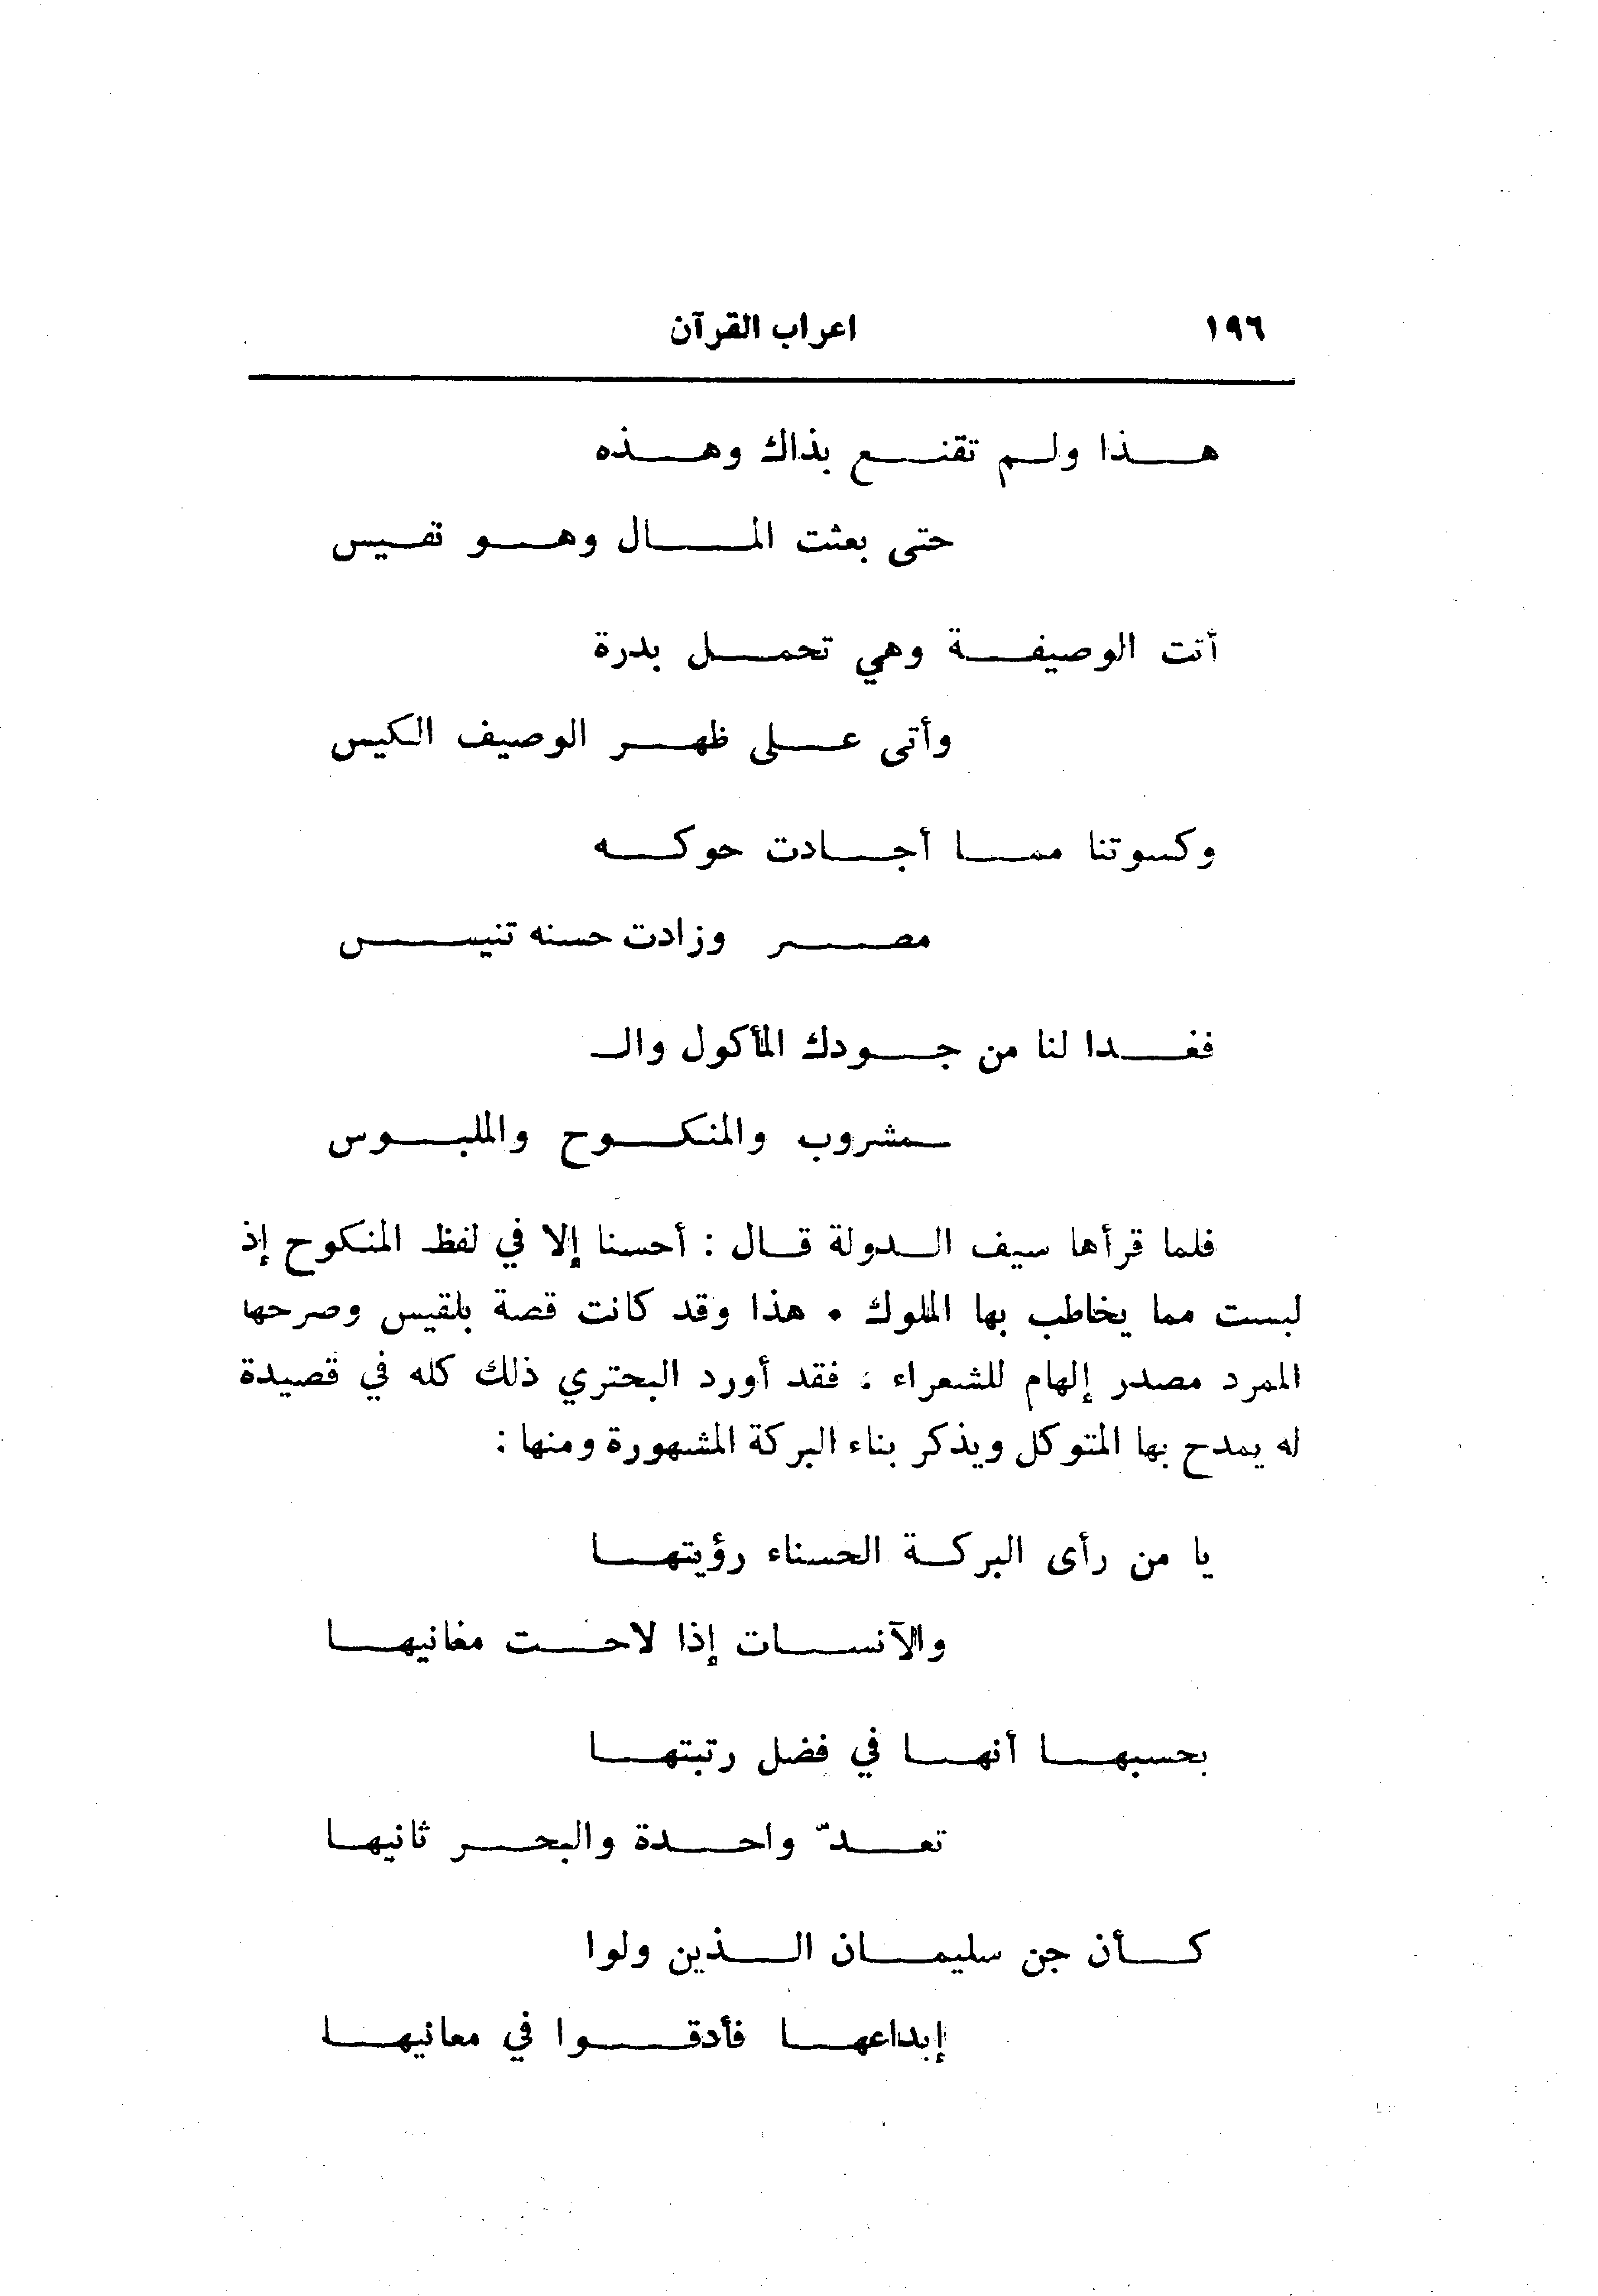 ١٩٦
اعراب القرآن
هذا ولم تقنع بذاك وهذه
حتى بعثت المال وهو نفيس
أتت الوصيفة وهي تحمل بدرة
وأتى على ظهر الوصيف الكيس
وكسوتنا مما أجادت حوكه
مصر وزادت حسنه تنيس
فغدا لنا من جودك المأكول والـ
ـمشروب والمنكوح والملبوس
فلما قرأها سيف الدولة قال : أحسنا إلا في لفظ المنكوح إذ
ليست مما يخاطب بها الملوك . هذا وقد كانت قصة بلقيس وصرحها
الممرد مصدر إلهام للشعراء ؛ فقد أورد البحتري ذلك كله في قصيدة
له يمدح بها المتوكل ويذكر بناء البركة المشهورة ومنها :
يا من رأى البركة الحسناء رؤيتها
والآنسات إذا لاحت مغانيها
بحسبها أنها في فضل رتبتها
تعدّ واحدة والبحر ثانيها
كأن جن سليمان الذين ولوا
إبداعها فأدقوا في معانيها